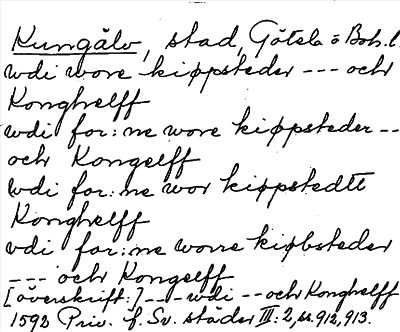 Kungälv, stad, Götala ö Boh. l.
udi wore kiøpsteder --- och
Konghelff
wdi for:ne wore kiøppsteder --
och Kongelff
wdi for:ne wor kippstedte
Konghelff
vdi for:ne worre kiøbsteder
--- och Kongelff
[överskrift:] --- wdi -- och Konghelff
1592 Priv. f. Sv. städer III: 2, ss. 912, 913.